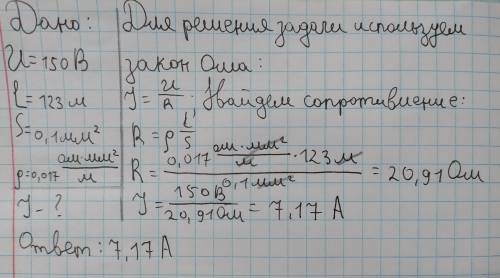 Дано:
U=150В
l=123м
S=0,1мм²
ρ=0,017 ом·мм²/м
J-?
Для решения задачи используем
закон Ома:
J=U/R; Найдем сопротивление:
R=ρ l/S
R= 0,017 ом·мм²/м ·123м / 0,1мм² = 20,91 Ом
J= 150В / 20,91 Ом = 7,17 А
Ответ: 7,17 А